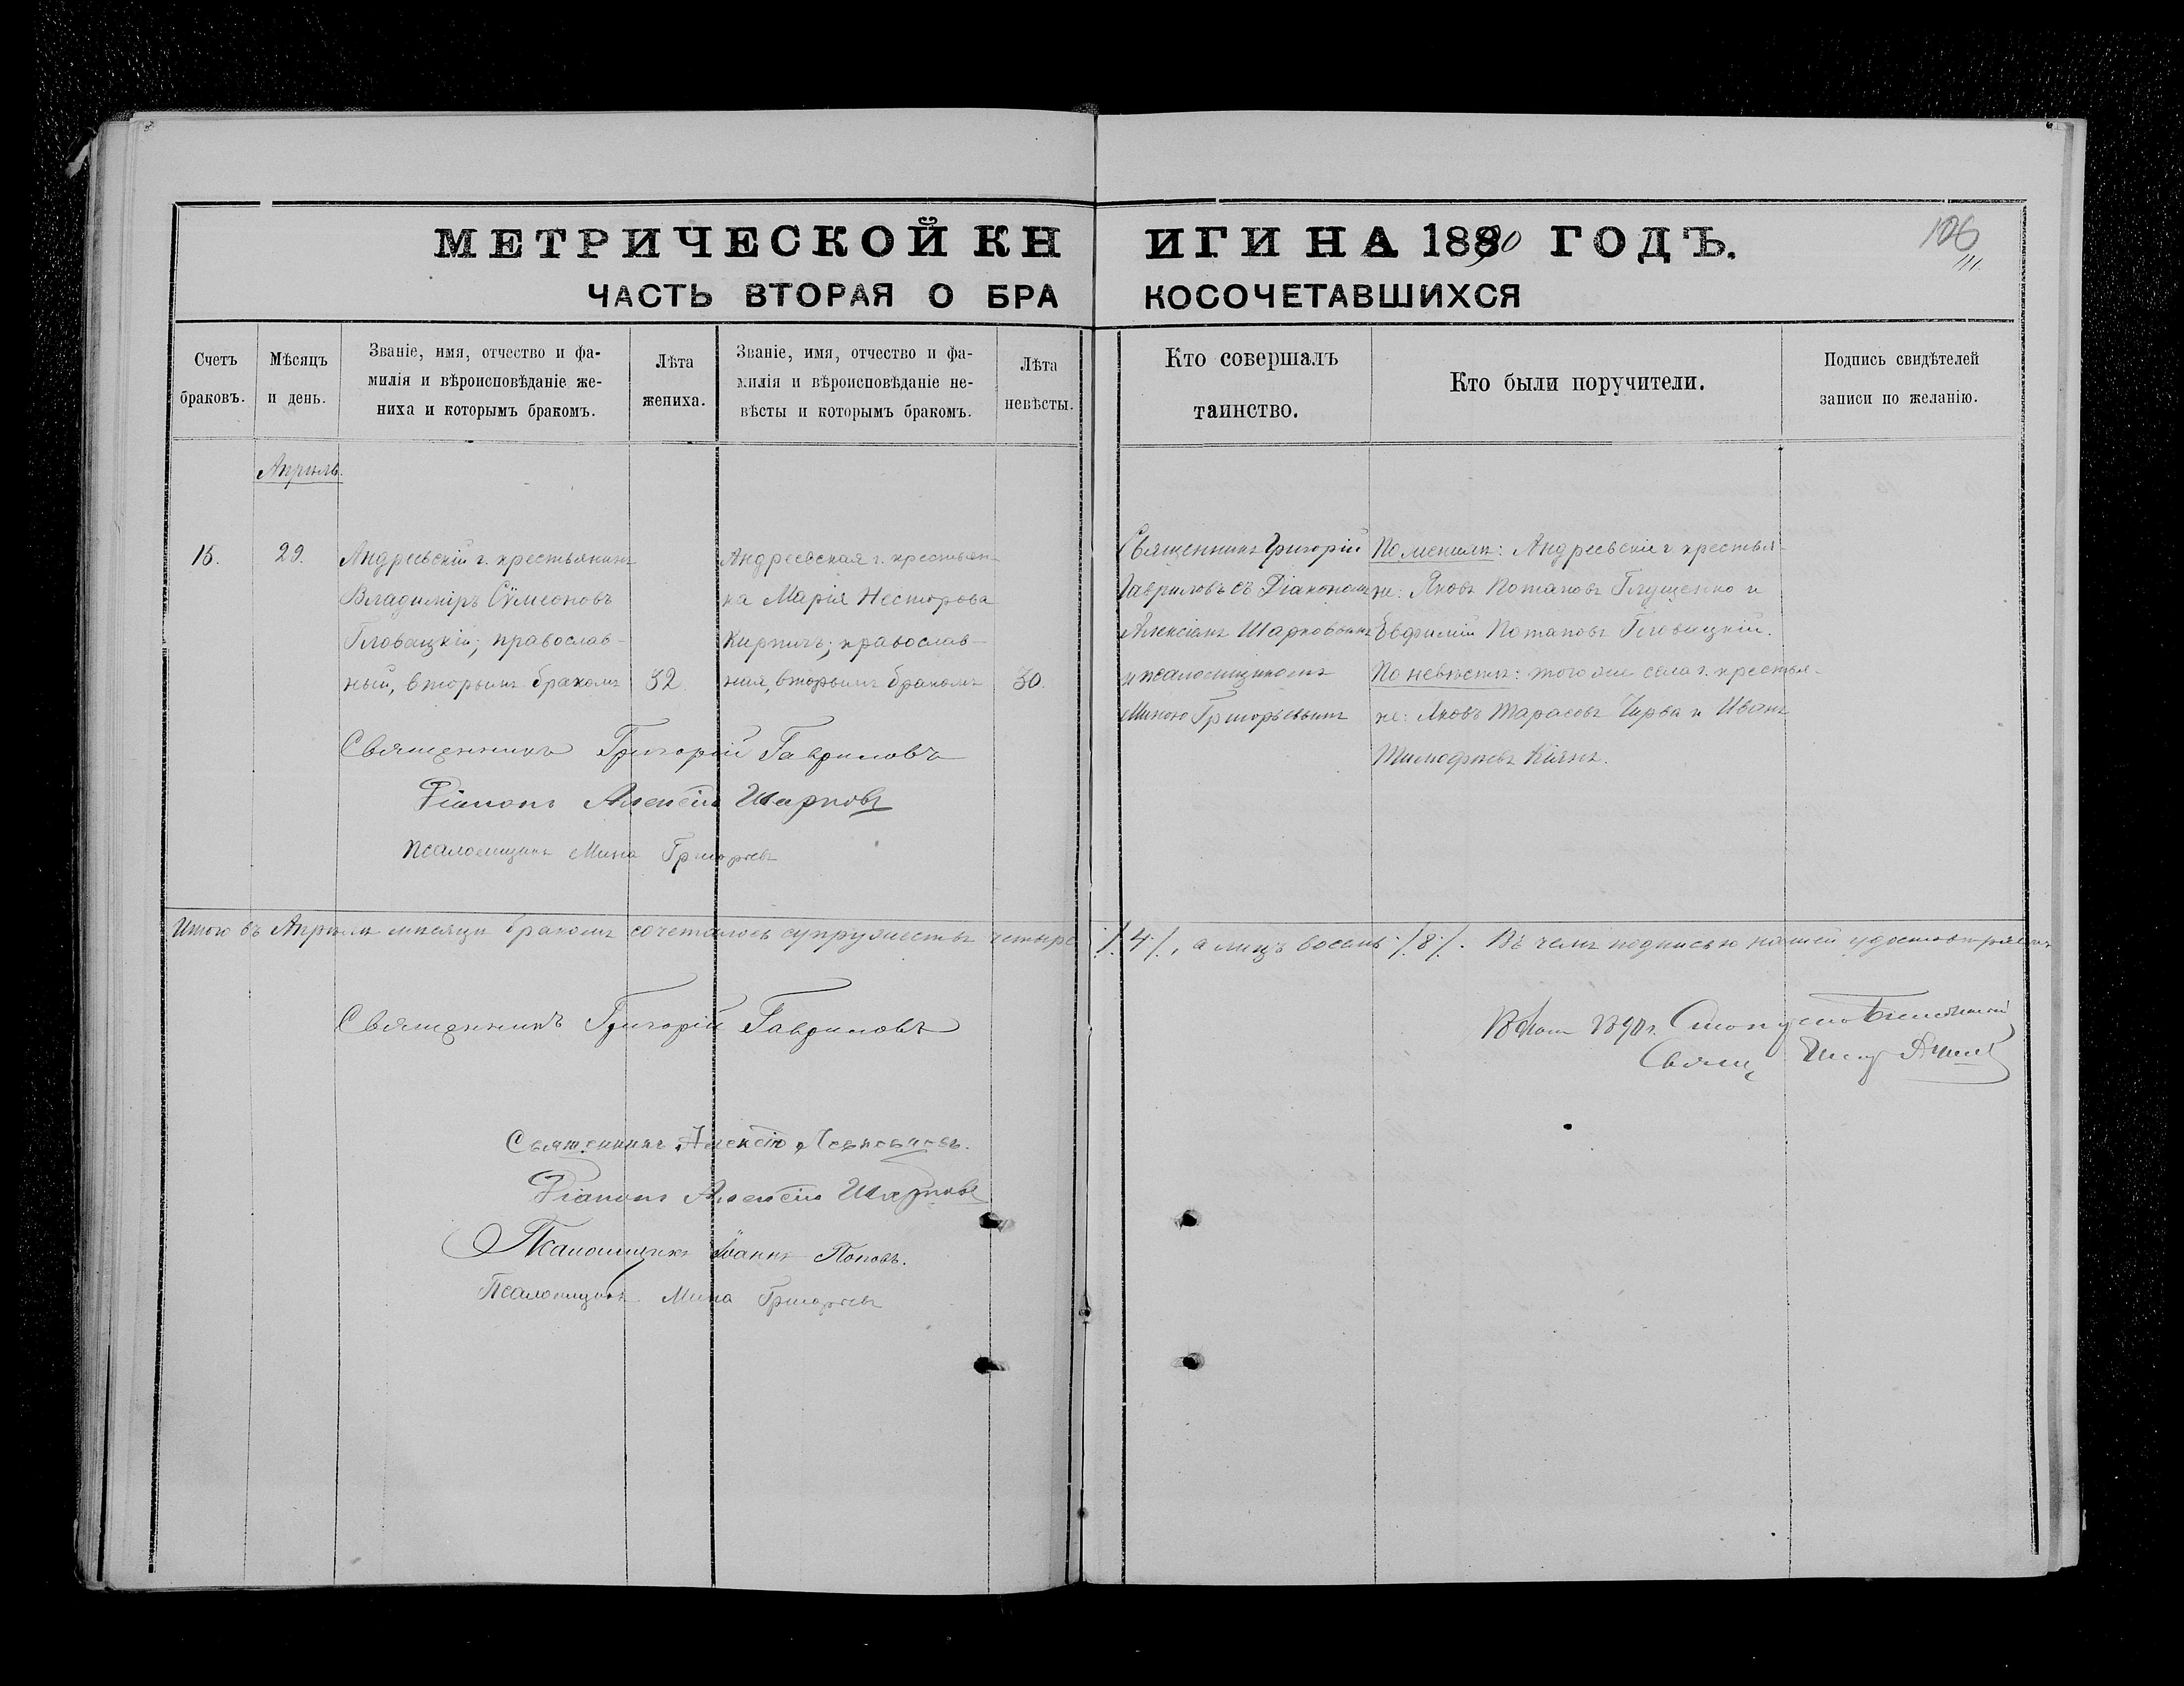 МЕТРИЧЕСКОЙ КНИГИ НА 1890 ГОДЪ.
126
111.
ЧАСТЬ ВТОРАЯ О БРАКОСОЧЕТАВШИХСЯ
Счетъ браковъ.
Мѣсяцъ и день.
Званіе, имя, отчество и фа-
милія и вѣроисповѣданіе же-
ниха и которымъ бракомъ.
Лѣта жениха.
Званіе, имя, отчество и фа-
милія и вѣроисповѣданіе не-
вѣсты и которымъ бракомъ.
Лѣта невѣсты.
Кто совершалъ
таинство.
Кто были поручители.
Подпись свидѣтелей
записи по желанію.
Апрѣль.
15.
29.
Андреевскій г. крестьянинъ
Владиміръ Сѵмеоновъ
Гловацкій; православ-
ный, вторымъ бракомъ
32.
Андреевская г. крестьян-
ка Марія Несторова
Кирпичъ; православ-
ная, вторымъ бракомъ
30.
Священникъ Григорій
Гавриловъ съ Діакономъ
Алексіемъ Шарковымъ
и псаломщикомъ
Миною Григорьевымъ
По женихѣ: Андреевскіе г. крестья-
не: Яковъ Потаповъ Глущенко и
Евфимій Потаповъ Гловацкій.
По невѣстѣ: того же села г. крестья-
не: Яковъ Тарасовъ Чирва и Иванъ
Тимофѣевъ Кіянъ.
Священникъ Григорій Гавриловъ
Діаконъ Алексій Шарковъ
Псаломщикъ Мина Григорьевъ
Итого въ Апрѣлѣ мѣсяцѣ бракомъ сочеталось супружествъ четыре /.4./, а лицъ восемь /.8./. Въ чемъ подписью нашей удостовѣряемъ
Священникъ Григорій Гавриловъ
1890г.
Свящ.
Священникъ Алексій
Діаконъ Алексій Шарковъ
Псаломщикъ Іоаннъ Поповъ.
Псаломщикъ Мина Григорьевъ